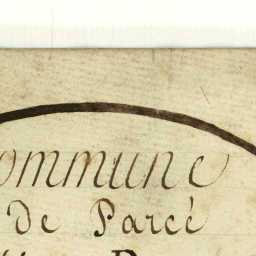 ommune
De Parcé